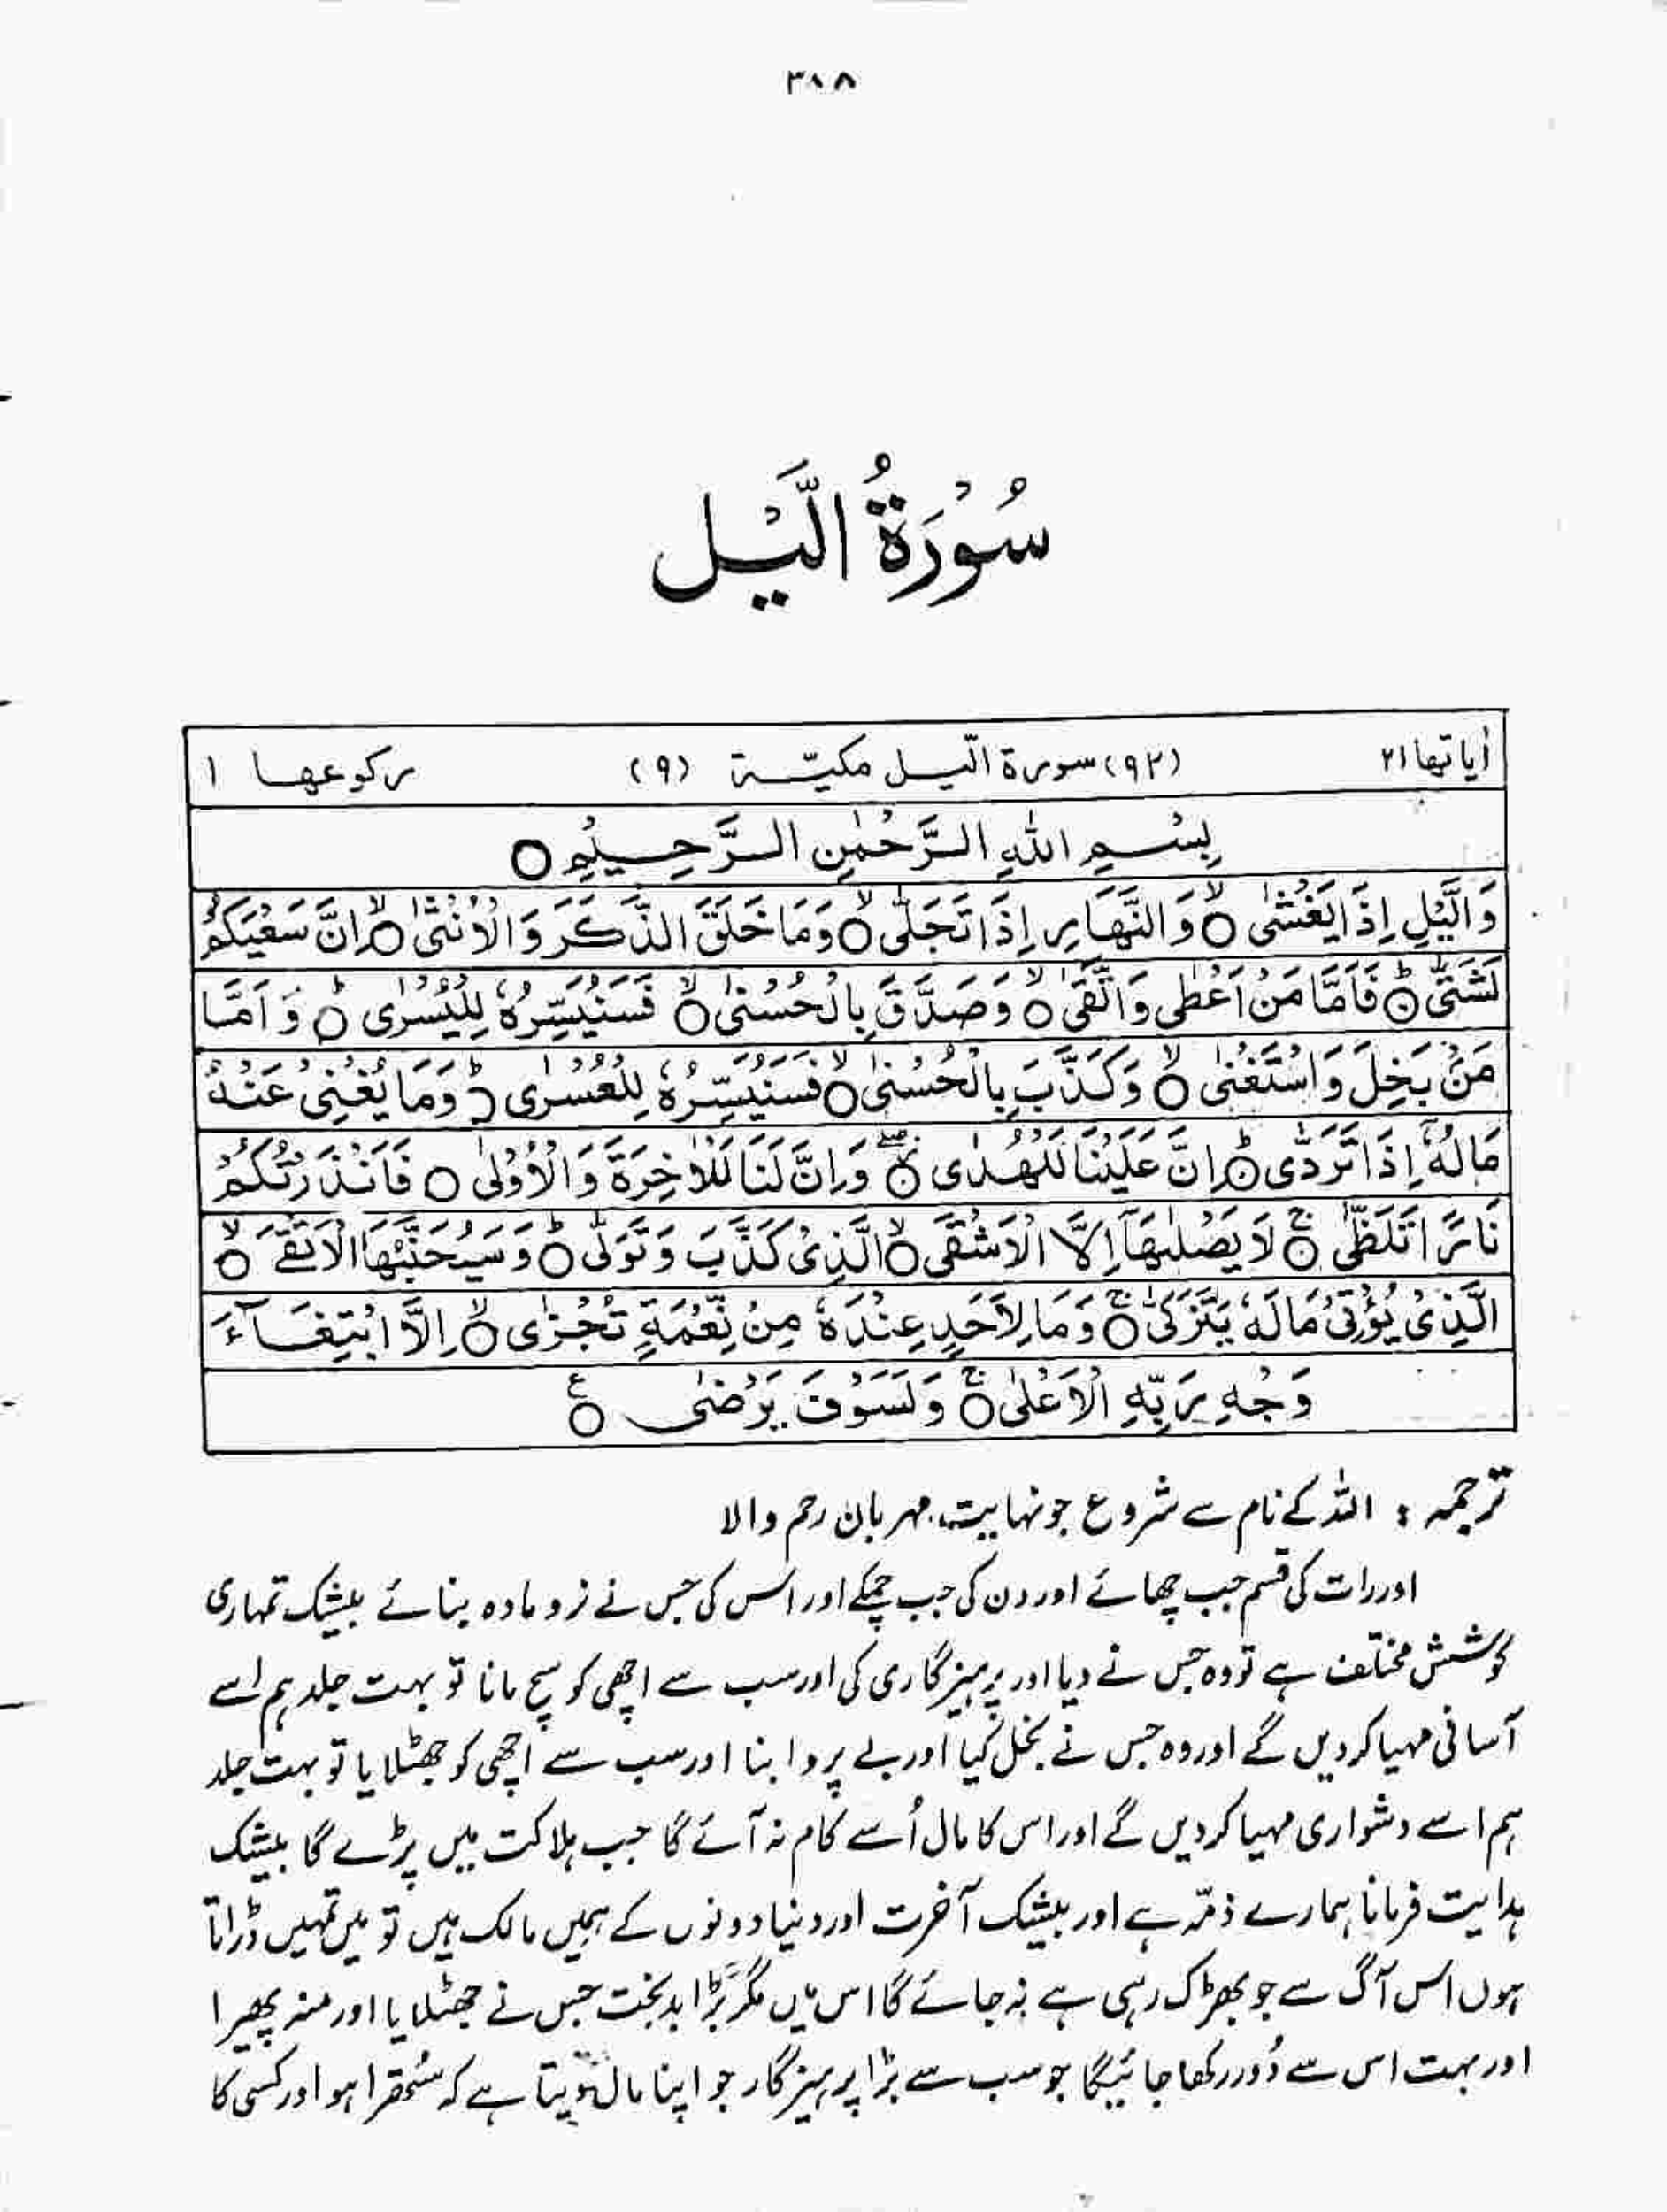 ۳۸۸
سُوْرَةُ الَّيْـل
اٰياتها ۲۱ (۹۲) سورة الّيـل مكيّـة (۹) ركوعهـا ۱
بِسْـمِ اللّٰهِ الـرَّحْمٰنِ الـرَّحِـيْمِ ○
وَالَّيْلِ اِذَا يَغْشٰى ○ۙ وَالنَّهَارِ اِذَا تَجَلّٰى ○ۙ وَمَا خَلَقَ الذَّكَرَ وَالْاُنْثٰى ○ۙ اِنَّ سَعْيَكُمْ
لَشَتّٰى ○ؕ فَاَمَّا مَنْ اَعْطٰى وَاتَّقٰى ○ۙ وَصَدَّقَ بِالْحُسْنٰى ○ۙ فَسَنُيَسِّرُهٗ لِلْيُسْرٰى ○ؕ وَ اَمَّا
مَنْ بَخِلَ وَاسْتَغْنٰى ○ۙ وَكَذَّبَ بِالْحُسْنٰى ○ۙ فَسَنُيَسِّرُهٗ لِلْعُسْرٰى ○ؕ وَمَا يُغْنِىْ عَنْهُ
مَالُهٗۤ اِذَا تَرَدّٰى ○ؕ اِنَّ عَلَيْنَا لَلْهُدٰى ○ۖ وَاِنَّ لَنَا لَلْاٰخِرَةَ وَالْاُوْلٰى ○ فَاَنْذَرْتُكُمْ
نَارًا تَلَظّٰى ○ۚ لَا يَصْلٰىهَاۤ اِلَّا الْاَشْقَى ○ۙ الَّذِىْ كَذَّبَ وَتَوَلّٰى ○ؕ وَسَيُجَنَّبُهَا الْاَتْقَى ○ۙ
الَّذِىْ يُؤْتِىْ مَالَهٗ يَتَزَكّٰى ○ۚ وَمَا لِاَحَدٍ عِنْدَهٗ مِنْ نِّعْمَةٍ تُجْزٰى ○ۙ اِلَّا ابْتِغَـآءَ
وَجْهِ رَبِّهِ الْاَعْلٰى ○ۚ وَلَسَوْفَ يَرْضٰى ○ع
ترجمہ : اللہ کے نام سے شروع جو نہایت مہربان رحم والا
اور رات کی قسم جب چھائے اور دن کی جب چمکے اور اس کی جس نے نر و مادہ بنائے بیشک تمہاری
کوشش مختلف ہے تو وہ جس نے دیا اور پرہیزگاری کی اور سب سے اچھی کو سچ مانا تو بہت جلد ہم اسے
آسانی مہیا کر دیں گے اور وہ جس نے بخل کیا اور بے پروا بنا اور سب سے اچھی کو جھٹلایا تو بہت جلد
ہم اسے دشواری مہیا کر دیں گے اور اس کا مال اُسے کام نہ آئے گا جب ہلاکت میں پڑے گا بیشک
ہدایت فرمانا ہمارے ذمّہ ہے اور بیشک آخرت اور دنیا دونوں کے ہمیں مالک ہیں تو میں تمہیں ڈراتا
ہوں اس آگ سے جو بھڑک رہی ہے نہ جائے گا اس میں مگر بڑا بدبخت جس نے جھٹلایا اور منہ پھیرا
اور بہت اس سے دُور رکھا جائیگا جو سب سے بڑا پرہیزگار جو اپنا مال دیتا ہے کہ ستھرا ہو اور کسی کا